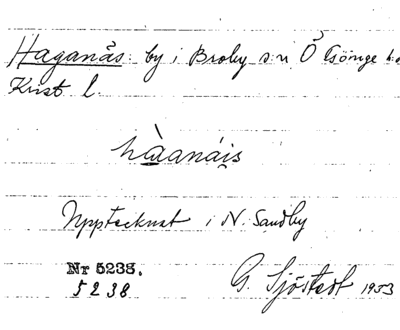 Haganäs: by i Broby sn Ö Göinge hd
Krist l.
hàanáis
Upptecknat i N. Sandby
Nr 5238.
5238
G. Sjöstedt 1953